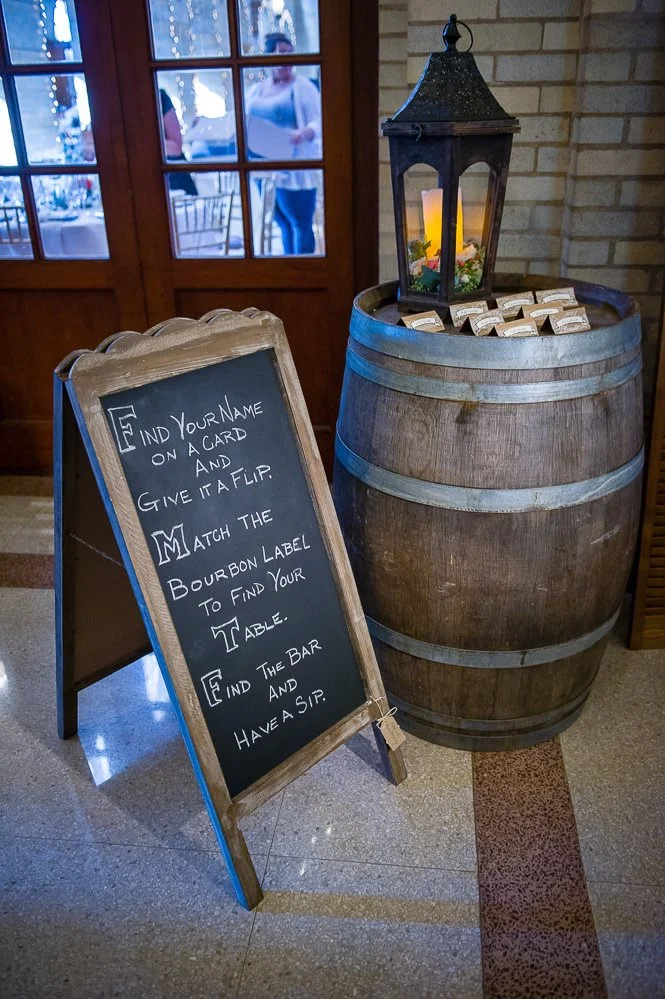 FIND YOUR NAME
ON A CARD
AND
GIVE IT A FLIP.
MATCH THE
BOURBON LABEL
TO FIND YOUR
TABLE.
FIND THE BAR
AND
HAVE A SIP.